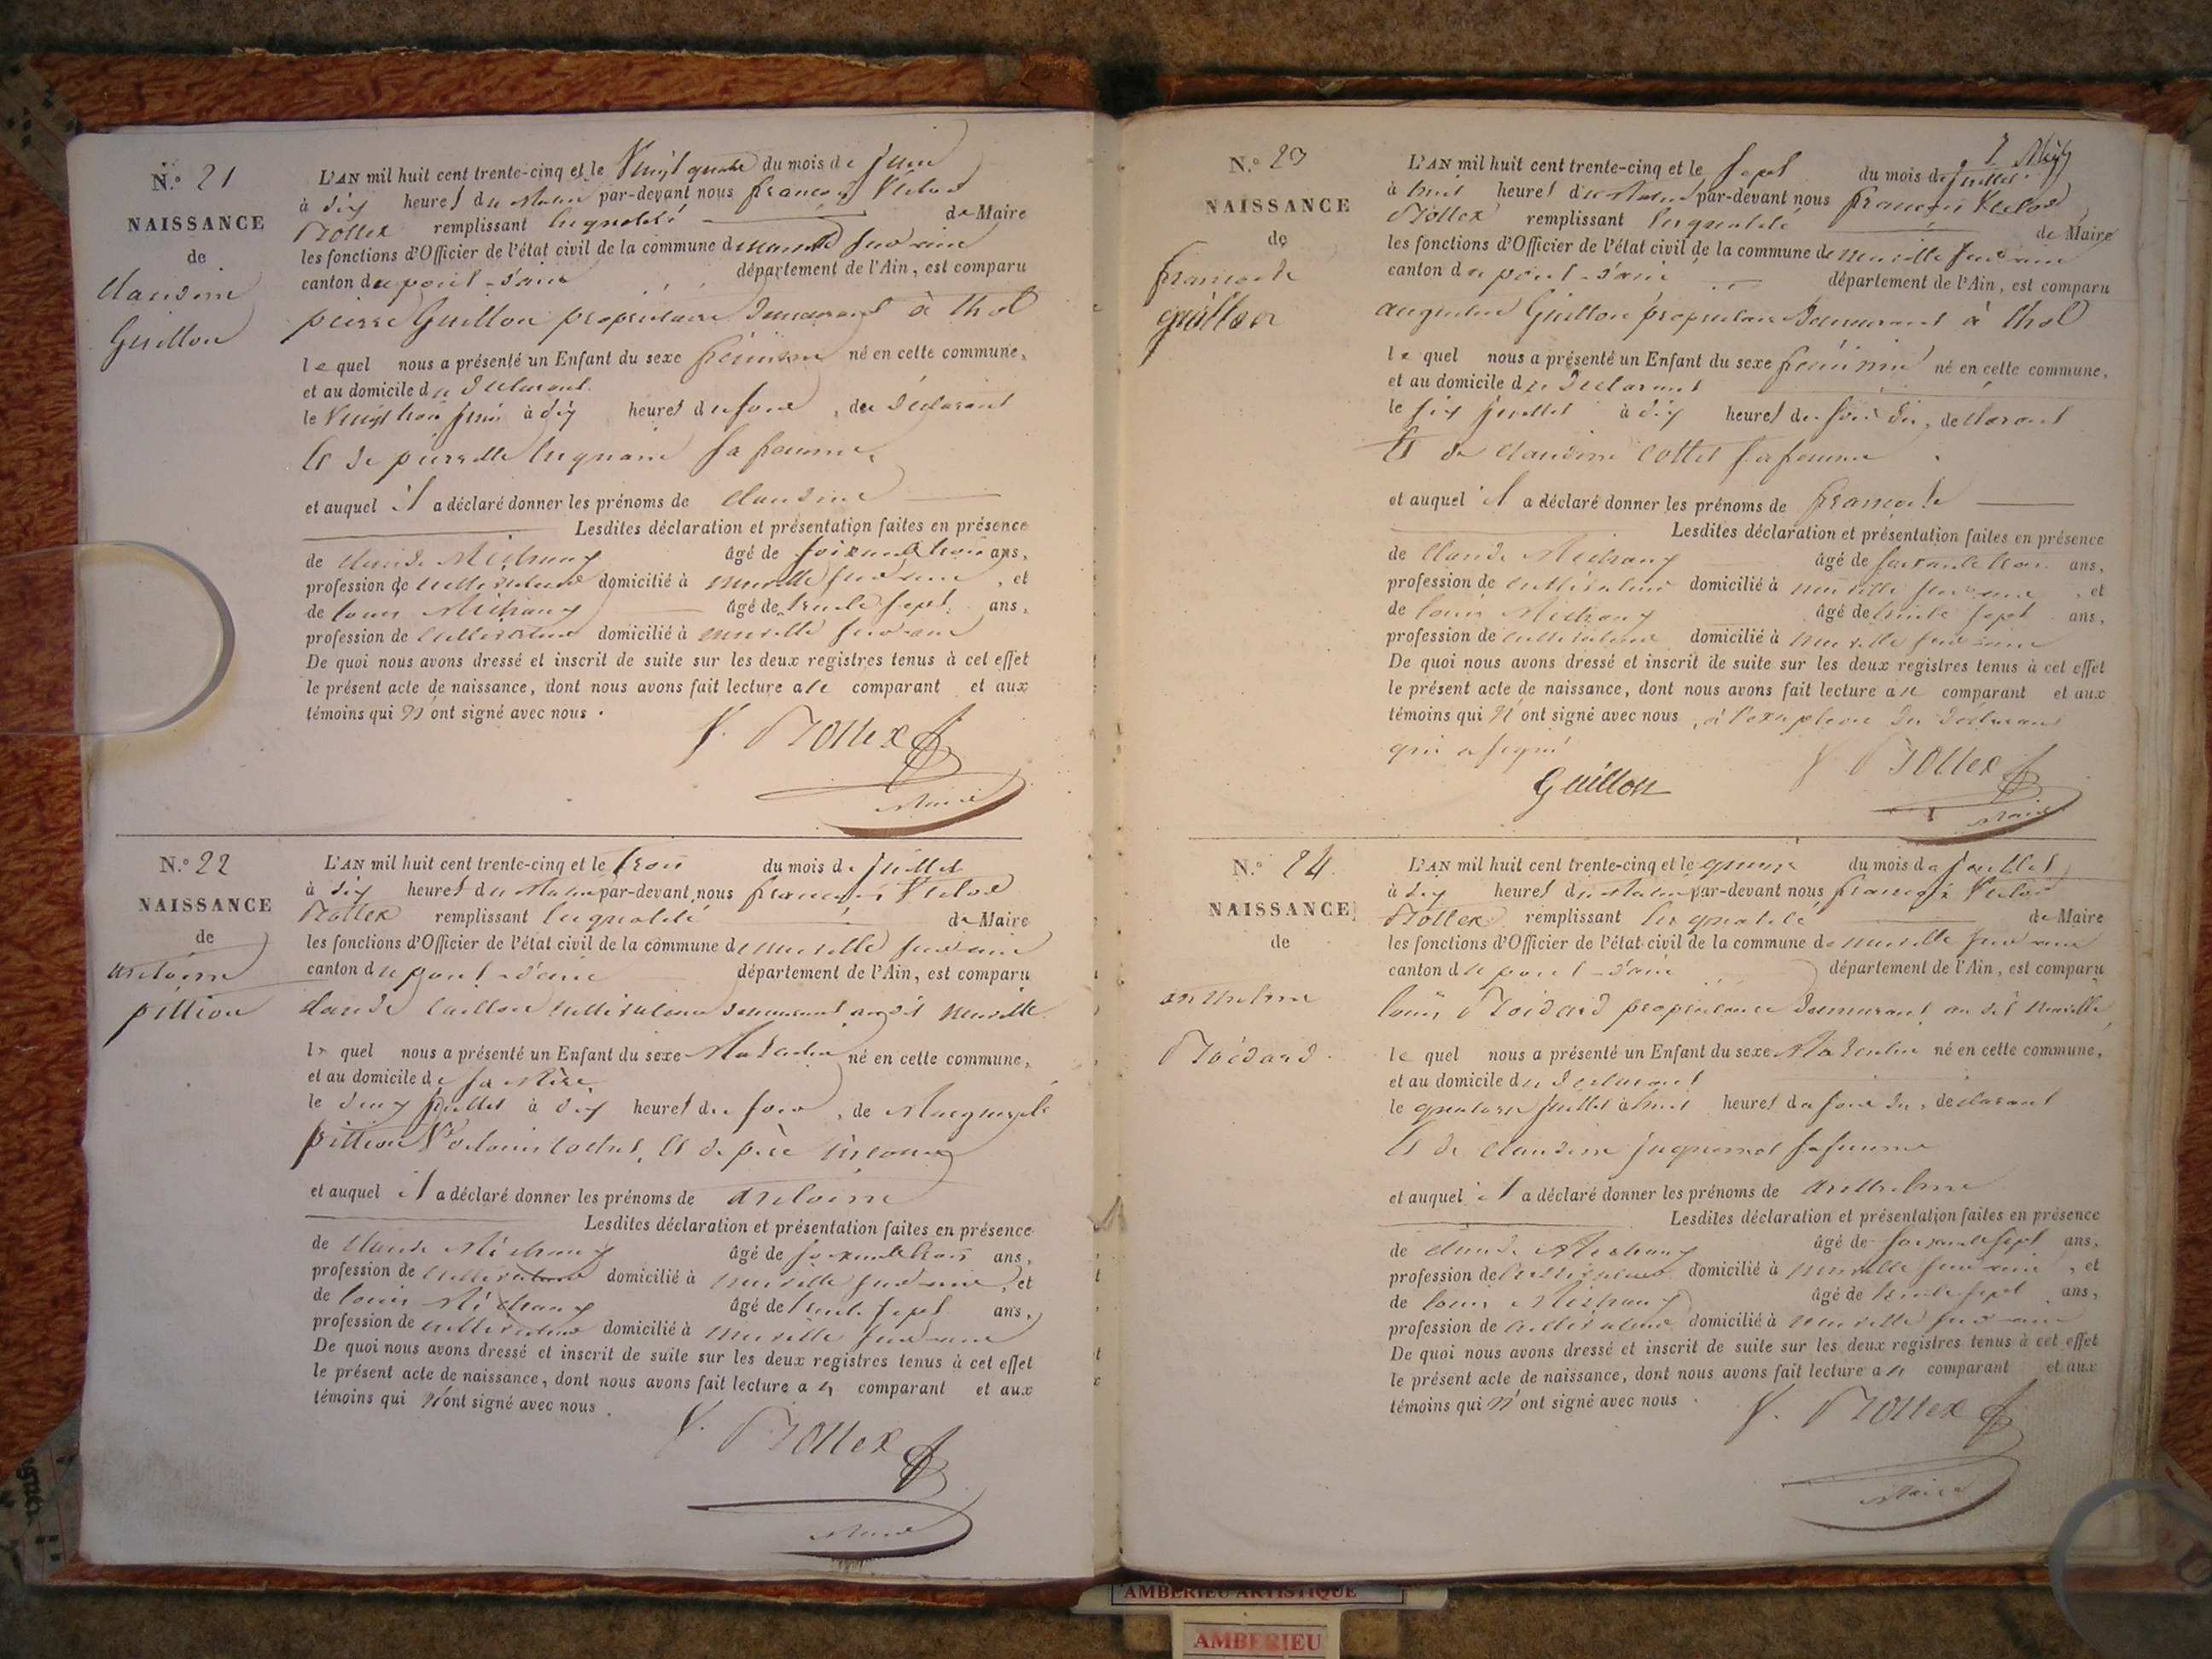 N.° 21
NAISSANCE
de
Claudine
Guillon
L'AN mil huit cent trente-cinq et le Vingt quatre du mois de Juin
à dix heures du Matin par-devant nous françois Victor
Bollex remplissant en qualité de Maire
les fonctions d'Officier de l'état civil de la commune de neuville sur ain
canton du pont-d'ain département de l'Ain, est comparu
pierre Guillon propriétaire demeurant à thol
lequel nous a présenté un Enfant du sexe féminin né en cette commune,
et au domicile du declarant
le Vingt trois juin à dix heures du soir, du déclarant
et de pierrette sa femme
et auquel il a déclaré donner les prénoms de Claudine
Lesdites déclaration et présentation faites en présence
de claude Michaux âgé de soixante trois ans,
profession de cultivateur domicilié à neuville sur ain, et
de louis Michaux âgé de trente sept ans,
profession de cultivateur domicilié à neuville sur ain
De quoi nous avons dressé et inscrit de suite sur les deux registres tenus à cet effet
le présent acte de naissance, dont nous avons fait lecture au comparant et aux
témoins qui N'ont signé avec nous.
V. Bollex
Maire
N.° 22
NAISSANCE
de
antoine
pittion
L'AN mil huit cent trente-cinq et le trois du mois de Juillet
à dix heures du Matin par-devant nous françois Victor
Bollex remplissant en qualité de Maire
les fonctions d'Officier de l'état civil de la commune de neuville sur ain
canton du pont-d'ain département de l'Ain, est comparu
claude cultivateur demeurant audit neuville
lequel nous a présenté un Enfant du sexe Masculin né en cette commune,
et au domicile de sa Mère
le deux juillet à dix heures du soir, de Marguerite
pittion Ve et de père inconnu
et auquel il a déclaré donner les prénoms de antoine
Lesdites déclaration et présentation faites en présence
de claude Michaux âgé de soixante trois ans,
profession de cultivateur domicilié à neuville sur ain, et
de louis Michaux âgé de trente sept ans,
profession de cultivateur domicilié à neuville sur ain
De quoi nous avons dressé et inscrit de suite sur les deux registres tenus à cet effet
le présent acte de naissance, dont nous avons fait lecture au comparant et aux
témoins qui N'ont signé avec nous.
V. Bollex
Maire
N.° 23
NAISSANCE
de
francoise
guillon
L'AN mil huit cent trente-cinq et le sept du mois de juillet
à huit heures du Matin par-devant nous françois Victor
Bollex remplissant en qualité de Maire
les fonctions d'Officier de l'état civil de la commune de neuville sur ain
canton du pont-d'ain département de l'Ain, est comparu
augustin Guillon propriétaire demeurant à thol
lequel nous a présenté un Enfant du sexe féminin né en cette commune,
et au domicile du declarant
le six juillet à dix heures du soir du, declarant
et de claudine cottet sa femme
et auquel il a déclaré donner les prénoms de francoise
Lesdites déclaration et présentation faites en présence
de claude Michaux âgé de soixante trois ans,
profession de cultivateur domicilié à neuville sur ain, et
de louis Michaux âgé de trente sept ans,
profession de cultivateur domicilié à neuville sur ain
De quoi nous avons dressé et inscrit de suite sur les deux registres tenus à cet effet
le présent acte de naissance, dont nous avons fait lecture au comparant et aux
témoins qui N'ont signé avec nous, à l'exception du déclarant
qui a signé
Guillon V. Bollex
Maire
N.° 24
NAISSANCE
de
anthelme
Boidard
L'AN mil huit cent trente-cinq et le quinze du mois de juillet
à dix heures du Matin par-devant nous françois Victor
Bollex remplissant en qualité de Maire
les fonctions d'Officier de l'état civil de la commune de neuville sur ain
canton du pont-d'ain département de l'Ain, est comparu
louis Boidard propriétaire demeurant au dit neuville
lequel nous a présenté un Enfant du sexe Masculin né en cette commune,
et au domicile du declarant
le quatorze juillet à huit heures du soir du, declarant
et de claudine sa femme
et auquel il a déclaré donner les prénoms de anthelme
Lesdites déclaration et présentation faites en présence
de claude Michaux âgé de soixante sept ans,
profession de cultivateur domicilié à neuville sur ain, et
de louis Michaux âgé de trente sept ans,
profession de cultivateur domicilié à neuville sur ain
De quoi nous avons dressé et inscrit de suite sur les deux registres tenus à cet effet
le présent acte de naissance, dont nous avons fait lecture au comparant et aux
témoins qui N'ont signé avec nous.
V. Bollex
Maire
AMBERIEU ARTISTIQUE
AMBERIEU